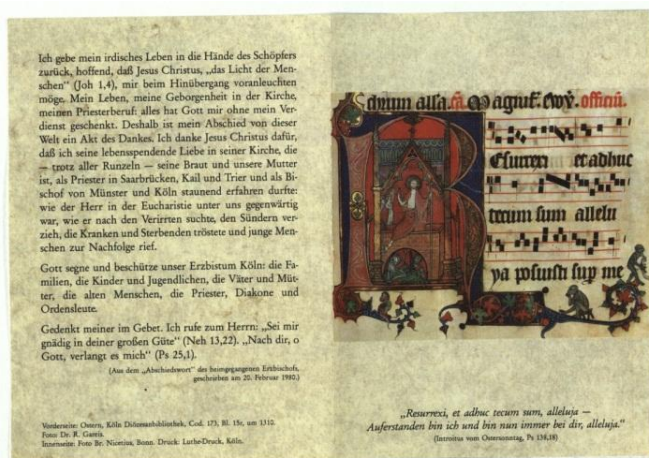 Ich gebe mein irdisches Leben in die Hände des Schöpfers
zurück, hoffend, daß Jesus Christus, „das Licht der Men-
schen“ (Joh 1,4), mir beim Hinübergang voranleuchten
möge. Mein Leben, meine Geborgenheit in der Kirche,
meinen Priesterberuf: alles hat Gott mir ohne mein Ver-
dienst geschenkt. Deshalb ist mein Abschied von dieser
Welt ein Akt des Dankes. Ich danke Jesus Christus dafür,
daß ich seine lebensspendende Liebe in seiner Kirche, die
— trotz aller Runzeln — seine Braut und unsere Mutter
ist, als Priester in Saarbrücken, Kail und Trier und als Bi-
schof von Münster und Köln staunend erfahren durfte:
wie der Herr in der Eucharistie unter uns gegenwärtig
war, wie er nach den Verirrten suchte, den Sündern ver-
zieh, die Kranken und Sterbenden tröstete und junge Men-
schen zur Nachfolge rief.
Gott segne und beschütze unser Erzbistum Köln: die Fa-
milien, die Kinder und Jugendlichen, die Väter und Müt-
ter, die alten Menschen, die Priester, Diakone und
Ordensleute.
Gedenkt meiner im Gebet. Ich rufe zum Herrn: „Sei mir
gnädig in deiner großen Güte“ (Neh 13,22). „Nach dir, o
Gott, verlangt es mich“ (Ps 25,1).
(Aus dem „Abschiedswort“ des heimgegangenen Erzbischofs,
geschrieben am 20. Februar 1980.)
Vorderseite: Ostern, Köln Diözesanbibliothek, Cod. 173, Bl. 15r, um 1310.
Foto: Dr. R. Gareis.
Innenseite: Foto Br. Nicetius, Bonn. Druck: Luthe-Druck, Köln.
magnif. officiu.
R
esurrexi et adhuc
tecum sum allelu
ya posuisti sup me
„Resurrexi, et adhuc tecum sum, alleluja —
Auferstanden bin ich und bin nun immer bei dir, alleluja.“
(Introitus vom Ostersonntag, Ps 138,18)